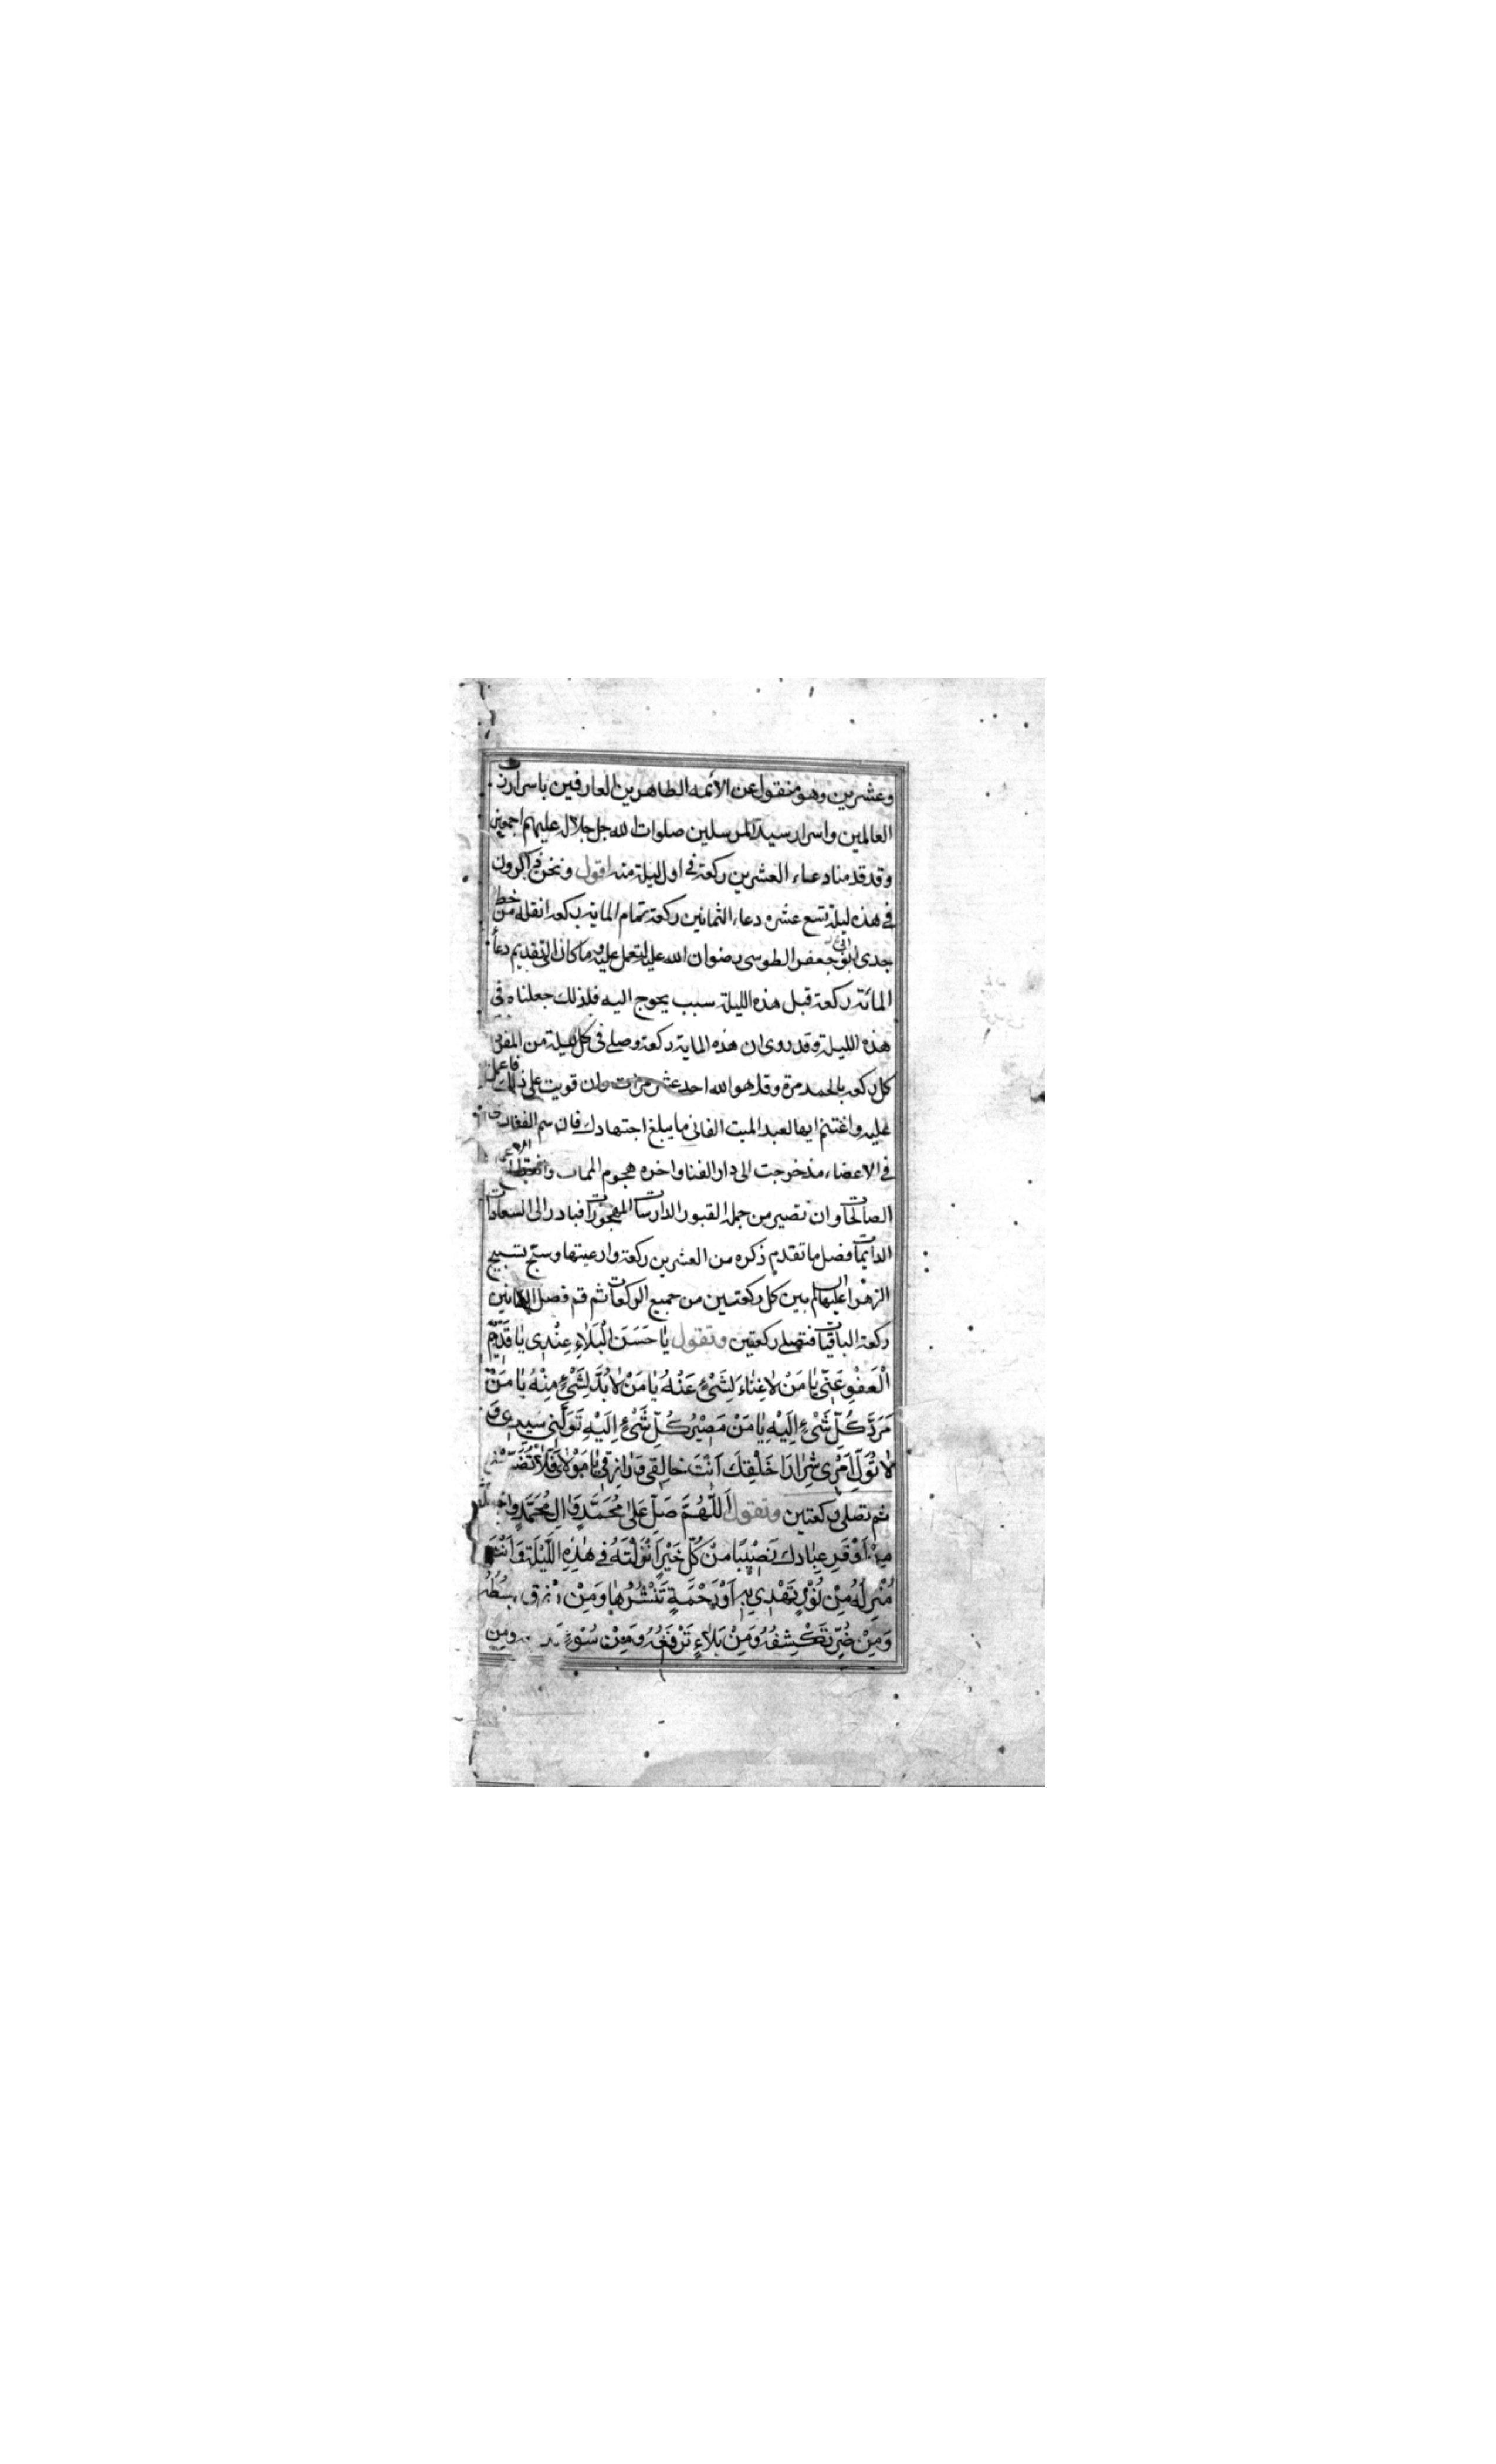 وعشرين وهو منقول عن الأئمه الطاهرين العارفين باسرار رب
العالمين واسرار سيد المرسلين صلوات الله جل جلاله عليهم اجمعين
وقد قدمنا دعاء العشرين ركعة في اول ليلة منه اقول ونحن ذاكرون
في هذه ليلة تسع عشره دعاء الثمانين ركعة تمام المايه ركعه انقله من خط
جدى ابى جعفر الطوسى رضوان الله عليه لتعمل عليه وما كان التقديم دعاء
المائة ركعة قبل هذه الليلة سبب يحوج اليه فلذلك جعلناه في
هذه الليلة وقد روى ان هذه المايه ركعة وصلى فى كل ليلة من المفردات
كل ركعه بالحمد مرة وقل هو الله احد عشر مرات وان قويت على ذلك فاعمل
عليه واغتنم ايها العبد الميت الفانى ما يبلغ اجتهادك فان سم الفناء
في الاعضاء مذ خرجت الى دار الفنا واخره هجوم الممات وانقطاع الاعمال
الصالحات وان تصير من جمله القبور الدارسات المهجورات فبادر الى السعادات
الدايمات فصل ما تقدم ذكره من العشرين ركعة وادعيتها وسبح تسبيح
الزهراء عليها السلام بين كل ركعتين من جميع الركعات ثم قم فصل الثمانين
ركعة الباقيات فتصلى ركعتين وتقول يَا حَسَنَ الْبَلَاءِ عِنْدِى يَا قَدِيْمَ
الْعَفْوِ عَنِّى يَا مَنْ لَا غِنَاءَ لِشَىْءٍ عَنْهُ يَا مَنْ لَا بُدَّ لِشَىْءٍ مِنْهُ يَا مَنْ
مَرَدُّ كُلِّ شَىْءٍ اِلَيْهِ يَا مَنْ مَصِيْرُ كُلِّ شَىْءٍ اِلَيْهِ تَوَلَّنِى سَيِّدِى وَ
لَا تُوَلِّ اَمْرِى شِرَارَ خَلْقِكَ اَنْتَ خَالِقِى وَرَازِقِى يَا مَوْلَاىَ فَلَا تُضَيِّعْنِى
ثم تصلى ركعتين وتقول اَللّٰهُمَّ صَلِّ عَلىٰ مُحَمَّدٍ وَاٰلِ مُحَمَّدٍ وَاجْعَلْنِى
مِنْ اَوْفَرِ عِبَادِكَ نَصِيْبًا مِنْ كُلِّ خَيْرٍ اَنْزَلْتَهُ فِى هٰذِهِ اللَّيْلَةِ وَاَنْتَ
مُنْزِلُهُ مِنْ نُوْرٍ تَهْدِى بِهِ اَوْ رَحْمَةٍ تَنْشُرُهَا وَمِنْ رِزْقٍ تَبْسُطُهُ
وَمِنْ ضُرٍّ تَكْشِفُهُ وَمِنْ بَلَاءٍ تَرْفَعُهُ وَمِنْ سُوْءٍ ومن